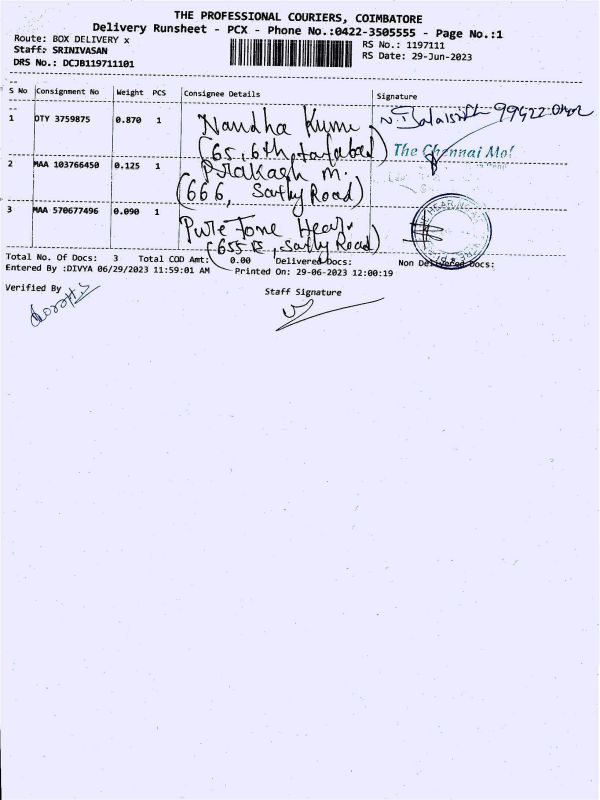 THE PROFESSIONAL COURIERS, COIMBATORE
Delivery Runsheet - PCX - Phone No.:0422-3505555 - Page No.:1
Route: BOX DELIVERY x
RS No.: 1197111
Staff: SRINIVASAN
RS Date: 29-Jun-2023
DRS No.: DCJB119711101
S No Consignment No Weight PCS Consignee Details Signature
1 OTY 3759875 0.870 1 Nandha Kumar
(65, 6th
The Chennai Mo
2 MAA 103766450 0.125 1 Prakash M.
(666, Sathy Road)
3 MAA 570677496 0.090 1 Pure Tone Hear.
(655 B, Sathy Road)
Total No. Of Docs: 3 Total COD Amt: 0.00 Delivered Docs: Non Delivered Docs:
Entered By :DIVYA 06/29/2023 11:59:01 AM Printed On: 29-06-2023 12:00:19
Verified By
Staff Signature